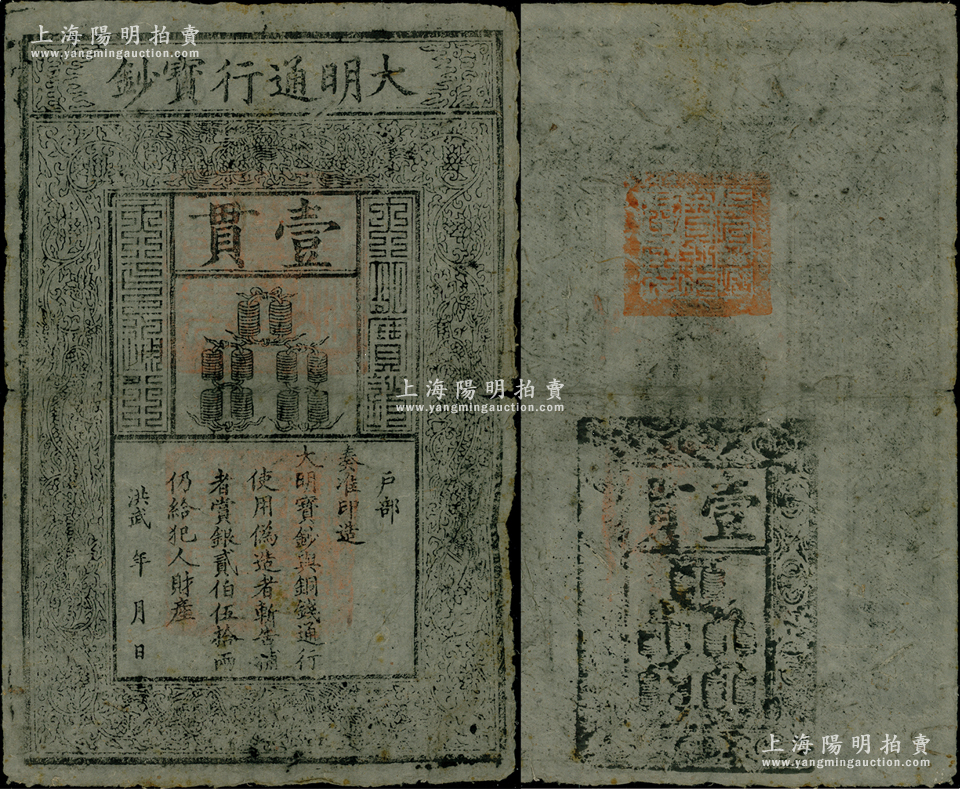 上海陽明拍賣
www.yangmingauction.com
上海陽明拍賣
www.yangmingauction.com
大明通行寶鈔
壹貫
戶部
奏准印造
大明寶鈔與銅錢通行
使用偽造者斬告捕
者賞銀貳伯伍拾兩
仍給犯人財產
洪武 年 月 日
上海陽明拍賣
www.yangmingauction.com
壹貫
上海陽明拍賣
www.yangmingauction.com